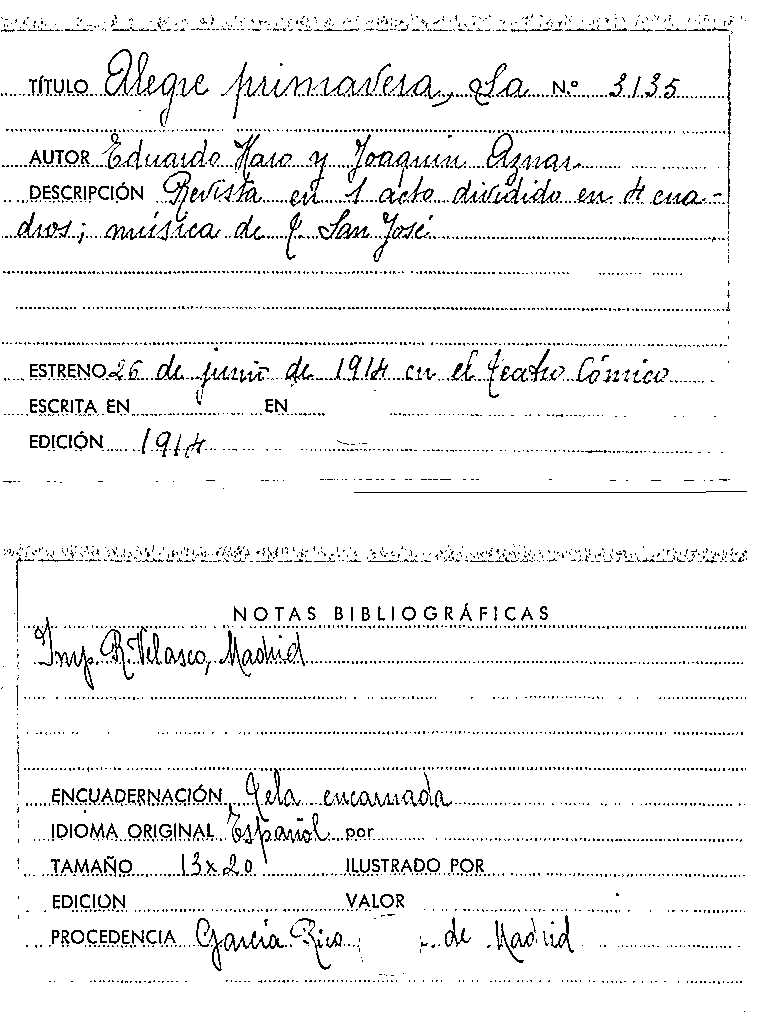 TÍTULO Alegre primavera, La N.º 3135
AUTOR Eduardo Haro y Joaquín Aznar
DESCRIPCIÓN Revista en 1 acto dividido en 4 cua-
dros; música de T. San José
ESTRENO 26 de junio de 1914 en el teatro Cómico
ESCRITA EN EN
EDICIÓN 1914
NOTAS BIBLIOGRÁFICAS
Imp. R. Velasco, Madrid
ENCUADERNACIÓN Tela encarnada
IDIOMA ORIGINAL Español por
TAMAÑO 13x20 ILUSTRADO POR
EDICION VALOR
PROCEDENCIA García Rico de Madrid